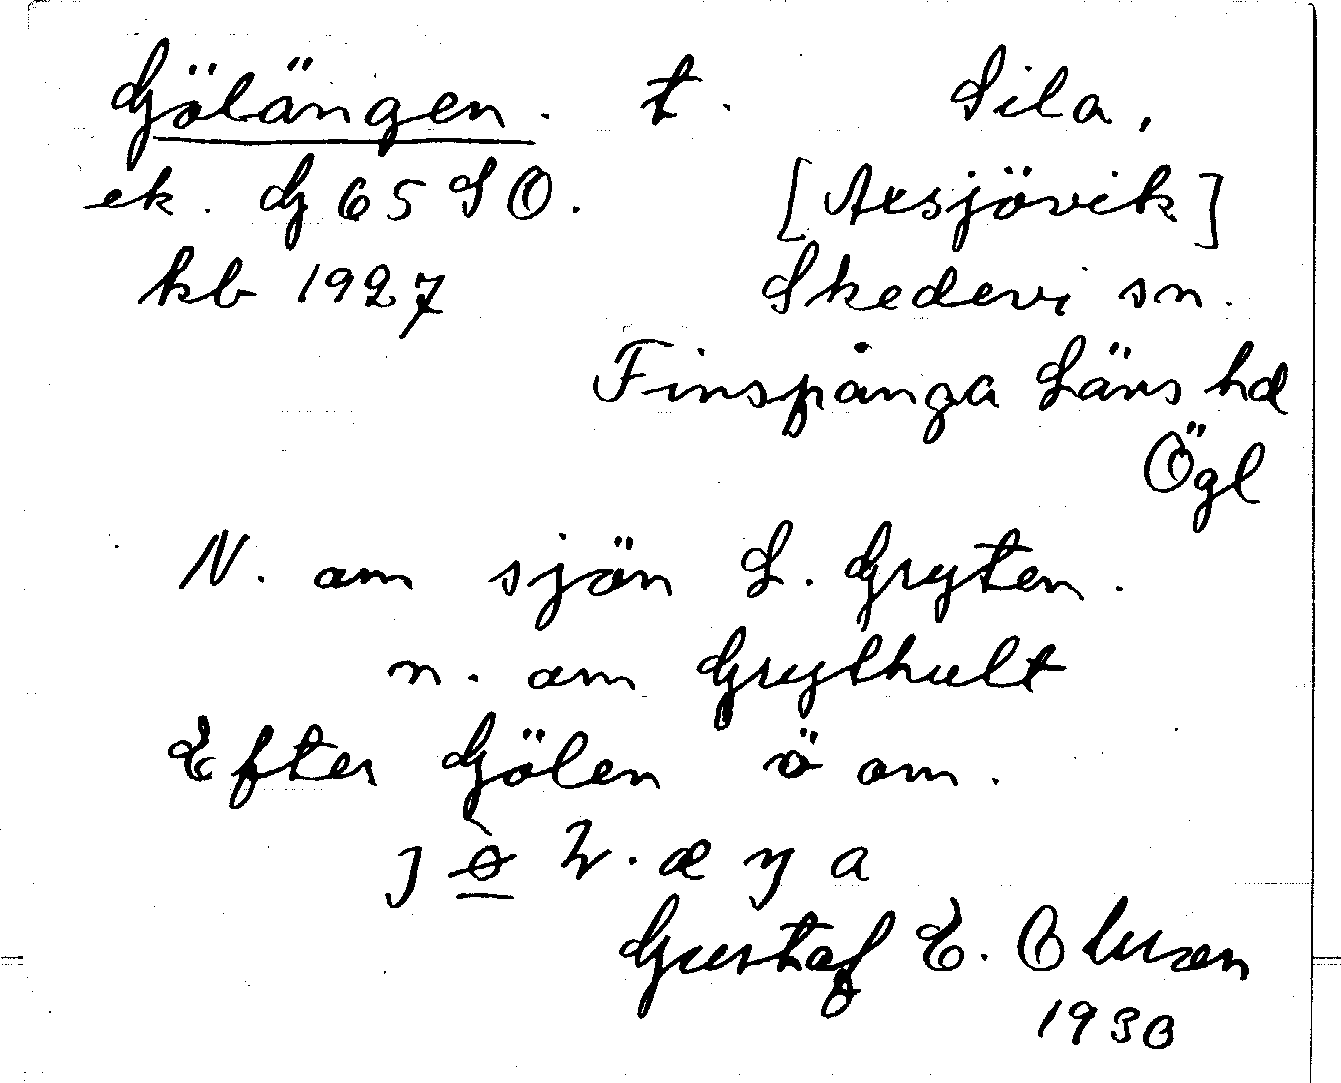 Gölängen. t. Sila,
ek. G 65 SO. [Axsjövik]
kb 1927 Skedevi sn.
Finspånga Läns hd
Ögl
N. om sjön L. Gryten.
n. om Grythult
Efter Gölen ö om.
Gustaf E. Olsson
1930